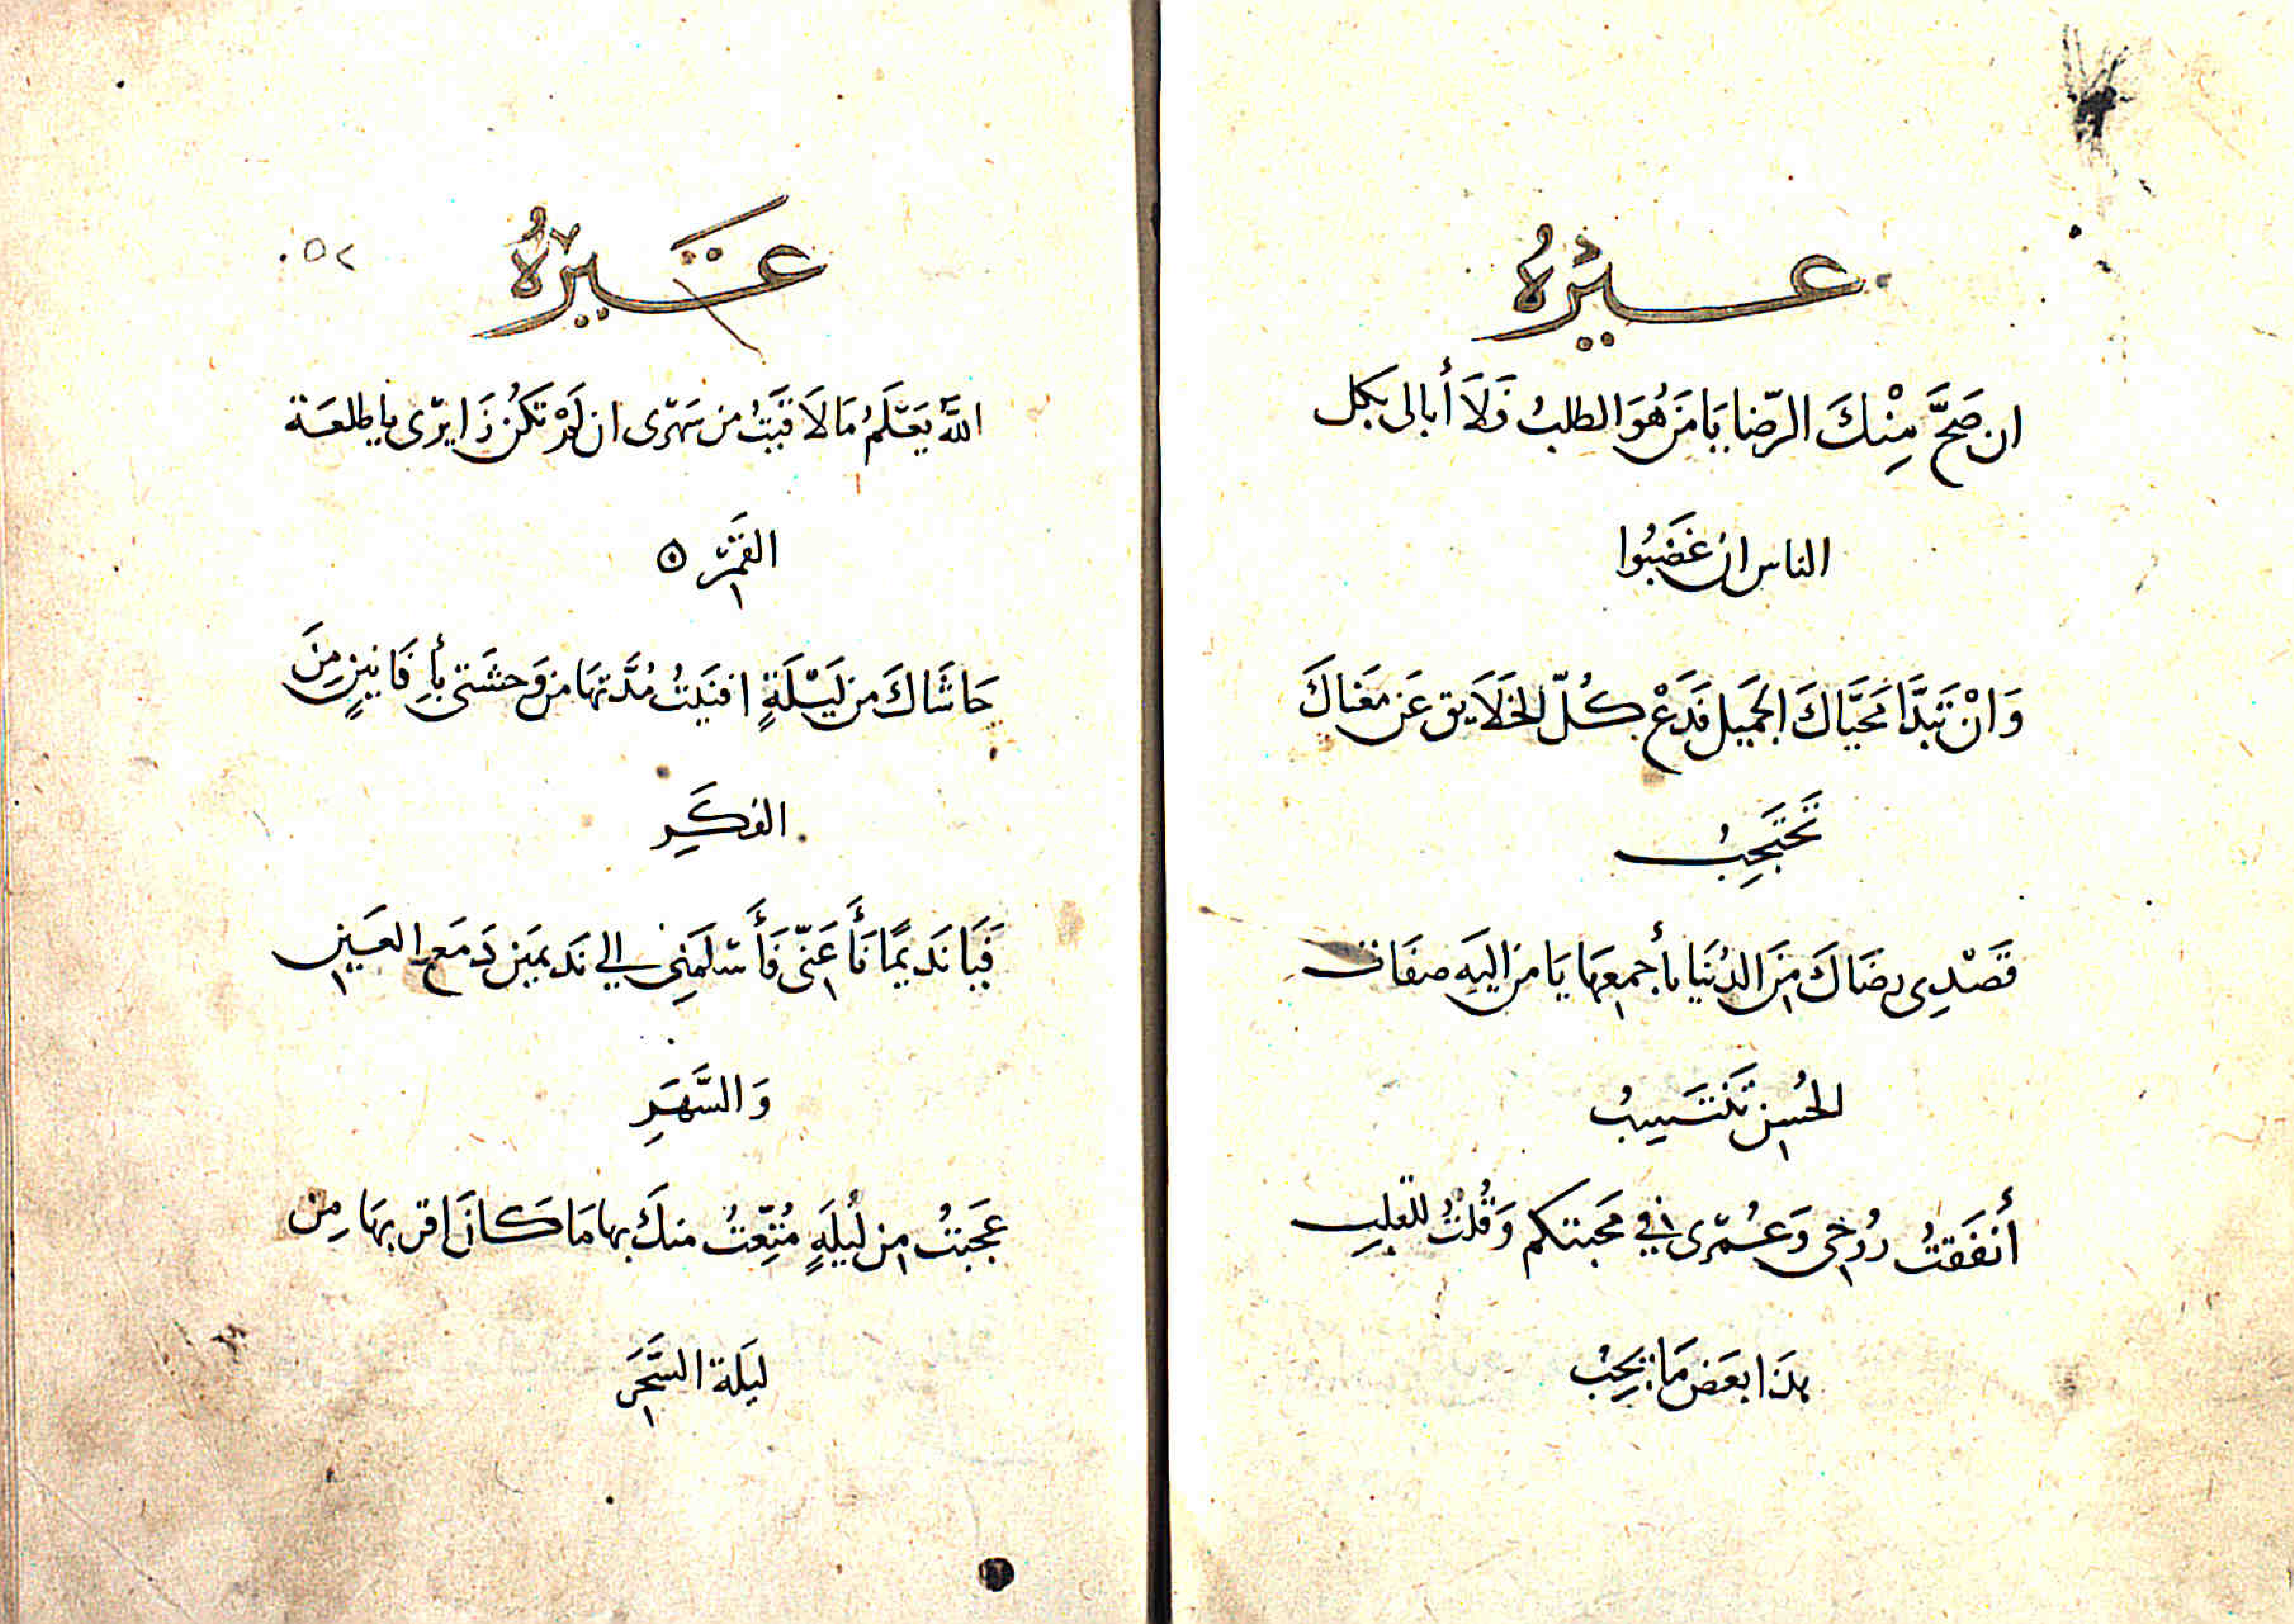 غيره
ان صَحَّ مِنْكَ الرّضا يَا مَن هُوَ الطلبُ فَلَا أبالى بكل
الناس ان غَضَبُوا
وَانْ تَبَدَّا مَحَيَّاكَ الجَميل فَدَعْ كُلّ الخَلَايق عَن مَعَناكَ
تَحتَجِبُ
قَصْدِى رضَاكَ مِنَ الدُنيَا بأجمعِهَا يَا من اليَه صفَات
الحُسن تَنتَسِبُ
أنفَقتُ رُوحى وَعُمْرى في مَحَبتكم وَقُلتُ للقلبِ
هذَا بعَض مَا يَجِبُ
غَيرهُ
٥٢
اللَّه يَعْلَمُ مَا لَاقَيَتُ من سَهَرى ان لَمْ تَكُن ذَا يرى يا طلعَة
القَمَرْ
حَاشَاكَ من لَيْلَةٍ افنَيتُ مُدَّتهَا من وَحشَتى بأفَانينٍ مِنَ
الفكَرِ
فَيَا نَدَيمًا نَأَ عَنّى فَأَسْلَمَنِى الي نَديمَين دَمَع العَين
وَالسَّهَرِ
عَجَبتُ من لَيلَةٍ مُتِّعتُ منكَ بها مَا كانَ اقربهَا مِن
ليَلَة السَّحَرِ